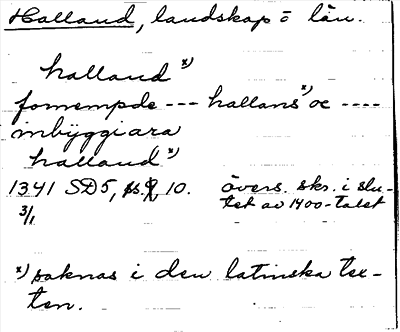 Halland, landskap o län.
halland x)
fornempde --- hallans x) oc ----
inbÿggiara
halland x)
1341 SD5, s. 9, 10. övers. skr. i slu-
3/1 tet av 1400-talet
x) saknas i den latinska tex-
ten.